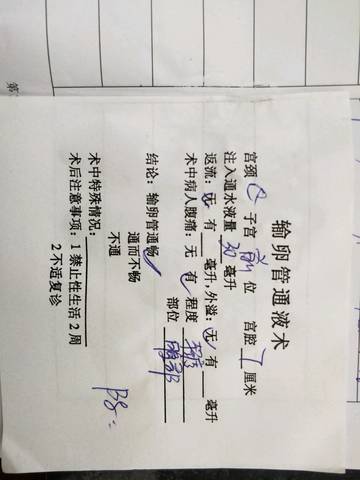 输卵管通液术
宫颈 子宫 前 位 宫腔 7 厘米
注入通水液量 20 毫升
返流：无 有 毫升，外溢：无 有 毫升
术中病人腹痛：无 有 程度
部位
结论：输卵管通畅 ✓
通而不畅
不通
术中特殊情况：
术后注意事项：1 禁止性生活 2 周
2 不适复诊
第